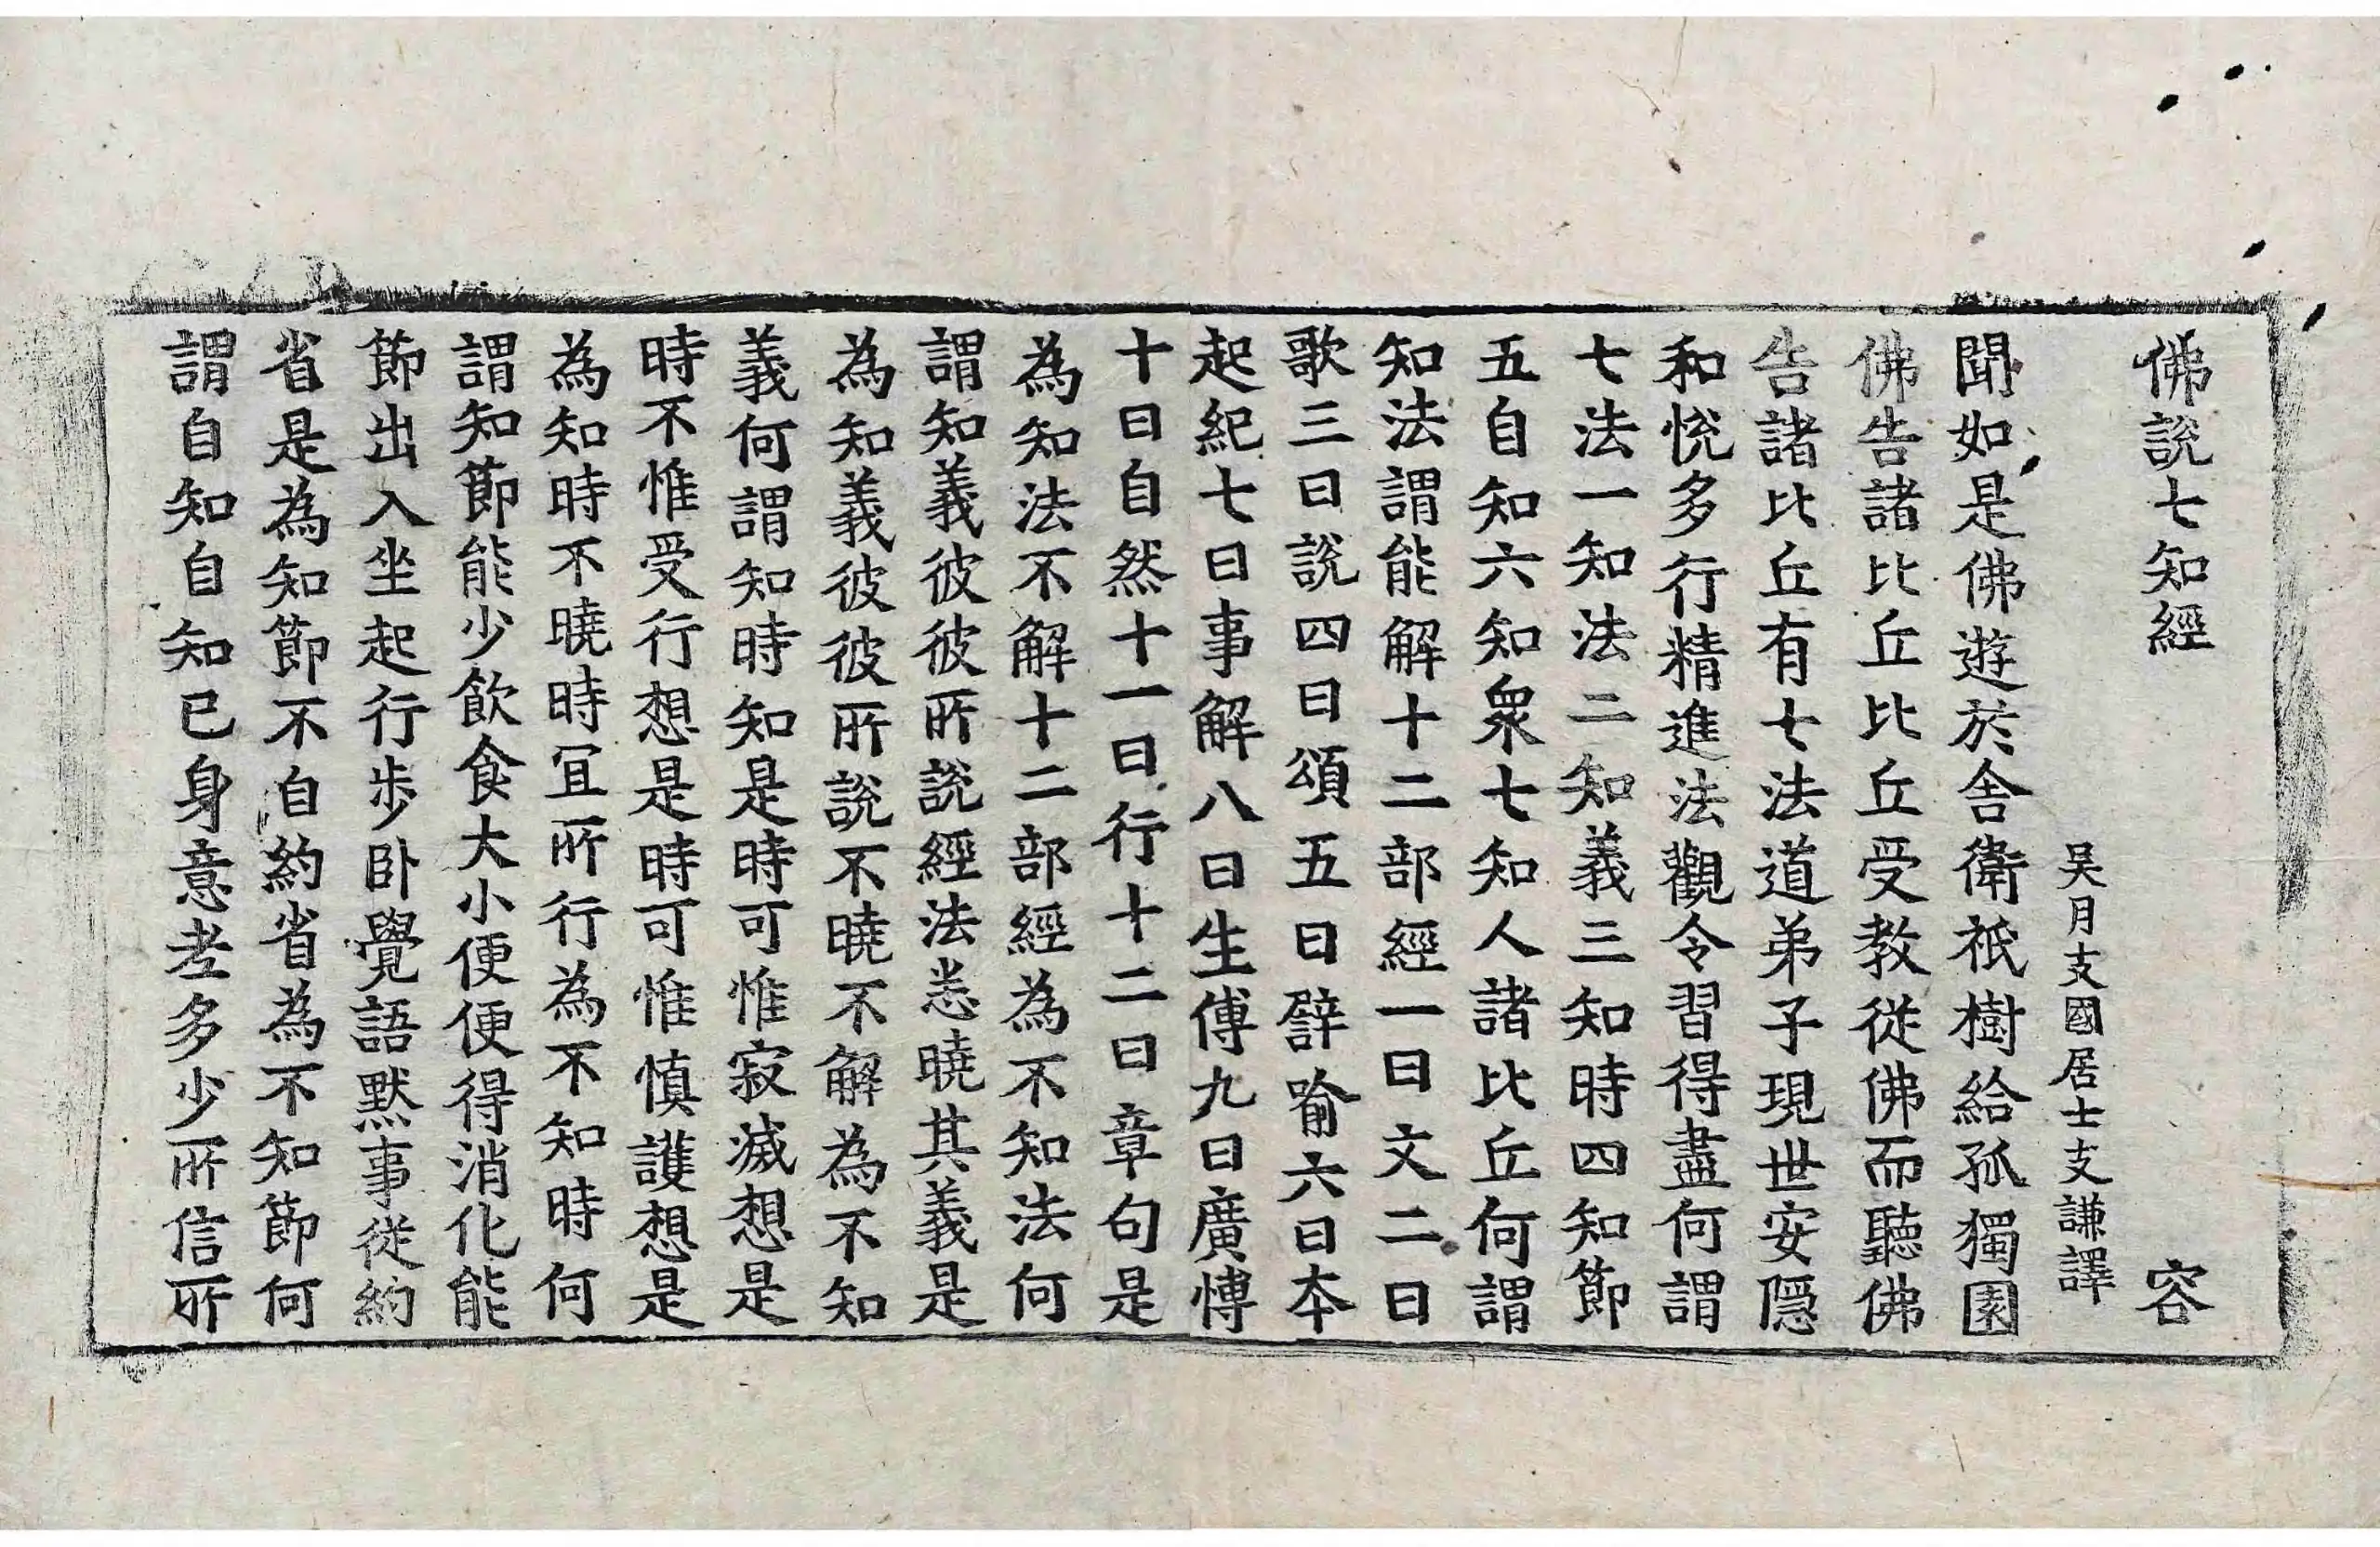 佛說七知經 容
吴月支國居士支謙譯
聞如是佛遊於舍衛祇樹給孤獨園
佛告諸比丘比丘受教從佛而聽佛
告諸比丘有七法道弟子現世安隱
和悅多行精進法觀令習得盡何謂
七法一知法二知義三知時四知節
五自知六知衆七知人諸比丘何謂
知法謂能解十二部經一曰文二曰
歌三曰說四曰頌五曰譬喻六曰本
起紀七曰事解八曰生傳九曰廣愽
十曰自然十一曰行十二曰章句是
為知法不解十二部經為不知法何
謂知義彼彼所說經法悉曉其義是
為知義彼彼所說不曉不解為不知
義何謂知時知是時可惟寂滅想是
時不惟受行想是時可惟慎護想是
為知時不曉時冝所行為不知時何
謂知節能少飲食大小便便得消化能
節出入坐起行步卧覺語默事從約
省是為知節不自約省為不知節何
謂自知自知已身意老多少所信所